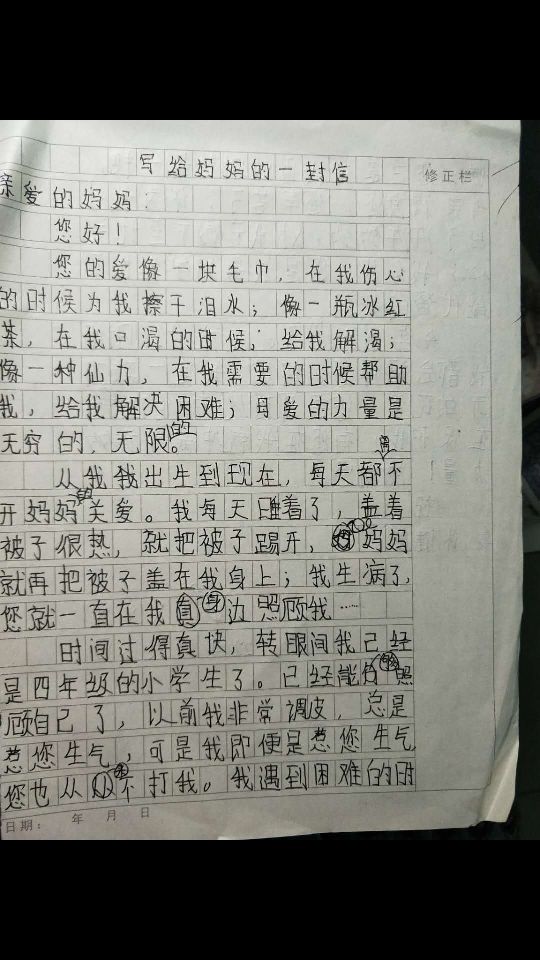 写给妈妈的一封信
修正栏
亲爱的妈妈：
您好！
您的爱像一块毛巾，在我伤心
的时候为我擦干泪水；像一瓶冰红
茶，在我口渴的时候，给我解渴；
像一种仙力，在我需要的时候帮助
我，给我解决困难；母爱的力量是
无穷的，无限的。
从我我出生到现在，每天都离不
开妈妈的关爱。我每天睡着了，盖着
被子很热，就把被子踢开，妈妈
就再把被子盖在我身上；我生病了，
您就一直在我身边照顾我……
时间过得真快，转眼间我已经
是四年级的小学生了。已经能够照
顾自己了，以前我非常调皮，总是
惹您生气，可是我即便是惹您生气
您也从不打我。我遇到困难的时
日期： 年 月 日